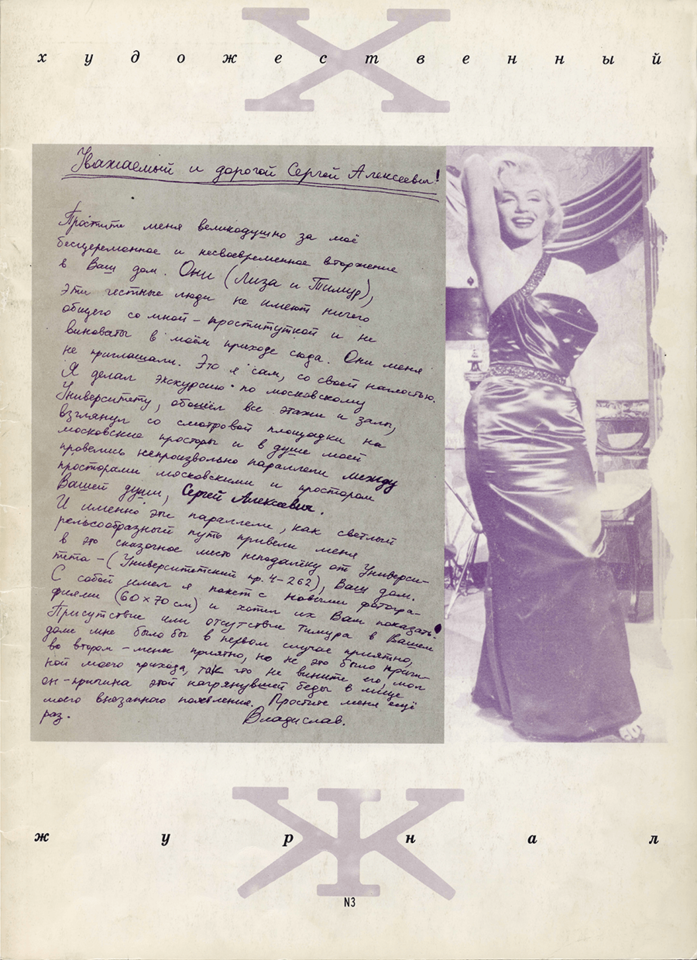 Х
художественный
Уважаемый и дорогой Сергей Алексеевич!
Простите меня великодушно за моё
бесцеременное и несвоевременное вторжение
в Ваш дом. Они (Лиза и Тимур),
эти честные люди не имеют ничего
общего со мной-проституткой и не
виноваты в моём приходе сюда. Они меня
не приглашали. Это я сам, со своей наглостью.
Я делал экскурсию по московскому
Университету, обошёл все этажи и залы,
взглянул со смотровой площадки на
московские просторы и в душе моей
провелись непроизвольно параллели между
просторами московскими и простором
Вашей души, Сергей Алексеевич.
И именно эти параллели, как светлый
рельсообразный путь привели меня
в это сказочное место неподалёку от Универси-
тета-(Университетский пр. 4-262), Ваш дом.
С собой имел я пакет с новыми фотогра-
фиями (60×70 см) и хотел их Вам показать.
Присутствие или отсутствие Тимура в Вашем
доме мне было бы в первом случае приятно,
во втором-менее приятно, но не это было причи-
ной моего прихода, так что не вините его, мол
он-причина этой нагрянувшей беды в лице
моего внезапного появления. Простите меня ещё
раз. Владислав.
Ж
журнал
N3